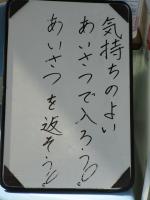 気持ちのよい
あいさつで入ろう
あいさつを返そう